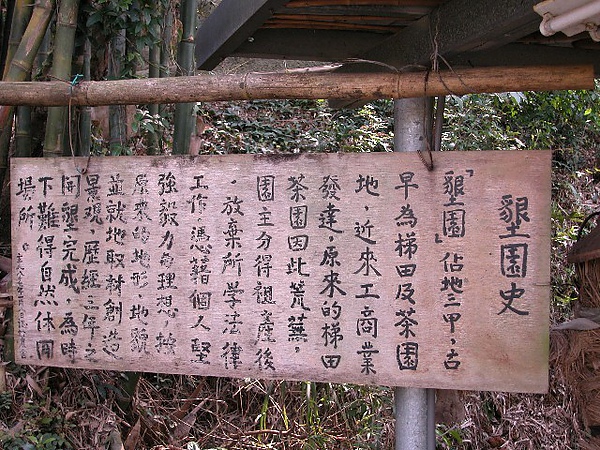 墾園史
「墾園」佔地三甲，古
早為梯田及茶園
地，近來工商業
發達，原來的梯田
茶園因此荒蕪，
園主分得祖產後
，放棄所學法律
工作，憑藉個人堅
強毅力與理想，按
原來的地形、地貌
並就地取材創造
景觀，歷經三年之
開墾完成，為時
下難得自然休閒
場所。